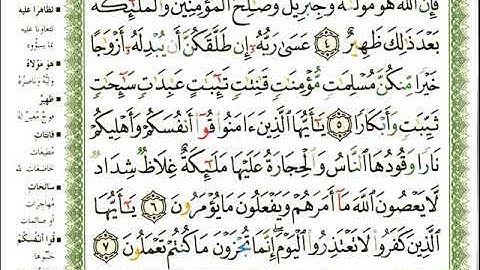 فَإِنَّ ٱللَّهَ هُوَ مَوْلَىٰهُ وَجِبْرِيلُ وَصَٰلِحُ ٱلْمُؤْمِنِينَ وَٱلْمَلَٰٓئِكَةُ
بَعْدَ ذَٰلِكَ ظَهِيرٌ ٤ عَسَىٰ رَبُّهُۥٓ إِن طَلَّقَكُنَّ أَن يُبْدِلَهُۥٓ أَزْوَٰجًا
خَيْرًا مِّنكُنَّ مُسْلِمَٰتٍ مُّؤْمِنَٰتٍ قَٰنِتَٰتٍ تَٰٓئِبَٰتٍ عَٰبِدَٰتٍ سَٰٓئِحَٰتٍ
ثَيِّبَٰتٍ وَأَبْكَارًا ٥ يَٰٓأَيُّهَا ٱلَّذِينَ ءَامَنُوا۟ قُوٓا۟ أَنفُسَكُمْ وَأَهْلِيكُمْ
نَارًا وَقُودُهَا ٱلنَّاسُ وَٱلْحِجَارَةُ عَلَيْهَا مَلَٰٓئِكَةٌ غِلَاظٌ شِدَادٌ
لَّا يَعْصُونَ ٱللَّهَ مَآ أَمَرَهُمْ وَيَفْعَلُونَ مَا يُؤْمَرُونَ ٦ يَٰٓأَيُّهَا
ٱلَّذِينَ كَفَرُوا۟ لَا تَعْتَذِرُوا۟ ٱلْيَوْمَ إِنَّمَا تُجْزَوْنَ مَا كُنتُمْ تَعْمَلُونَ ٧
تظاهرا عليه
تتعاونا عليه
بما يسوؤه
هو مولاه
وليه وناصره
ظهير
فوج معين له
قانتات
مطيعات
خاضعات لله
سائحات
مهاجرات
أو صائمات
قوا أنفسكم
جنبوها